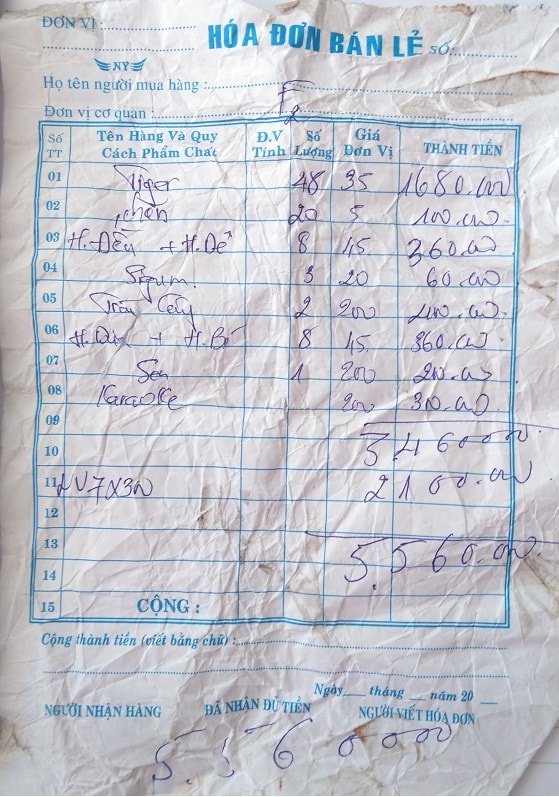 ĐƠN VỊ :
HÓA ĐƠN BÁN LẺ SỐ:
NY
Họ tên người mua hàng :
Đơn vị cơ quan : F2
Số TT Tên Hàng Và Quy Cách Phẩm Chất Đ.V Tính Số Lượng Giá Đơn Vị THÀNH TIỀN
01 Tiger 48 35 1680.000
02 20 5 100.000
03 H.Dền + H.Dẻ 8 45 360.000
04 3 20 60.000
05 Trái Cây 2 200 400.000
06 8 45 360.000
07 Sen 1 200 200.000
08 Karaoke 300.000
09
10 3.460000
11 NV7x300 2100.000
12
13
14 5.560.000
15 CỘNG :
Cộng thành tiền (viết bằng chữ) :
Ngày tháng năm 20
NGƯỜI NHẬN HÀNG ĐÃ NHẬN ĐỦ TIỀN NGƯỜI VIẾT HÓA ĐƠN
5.560000